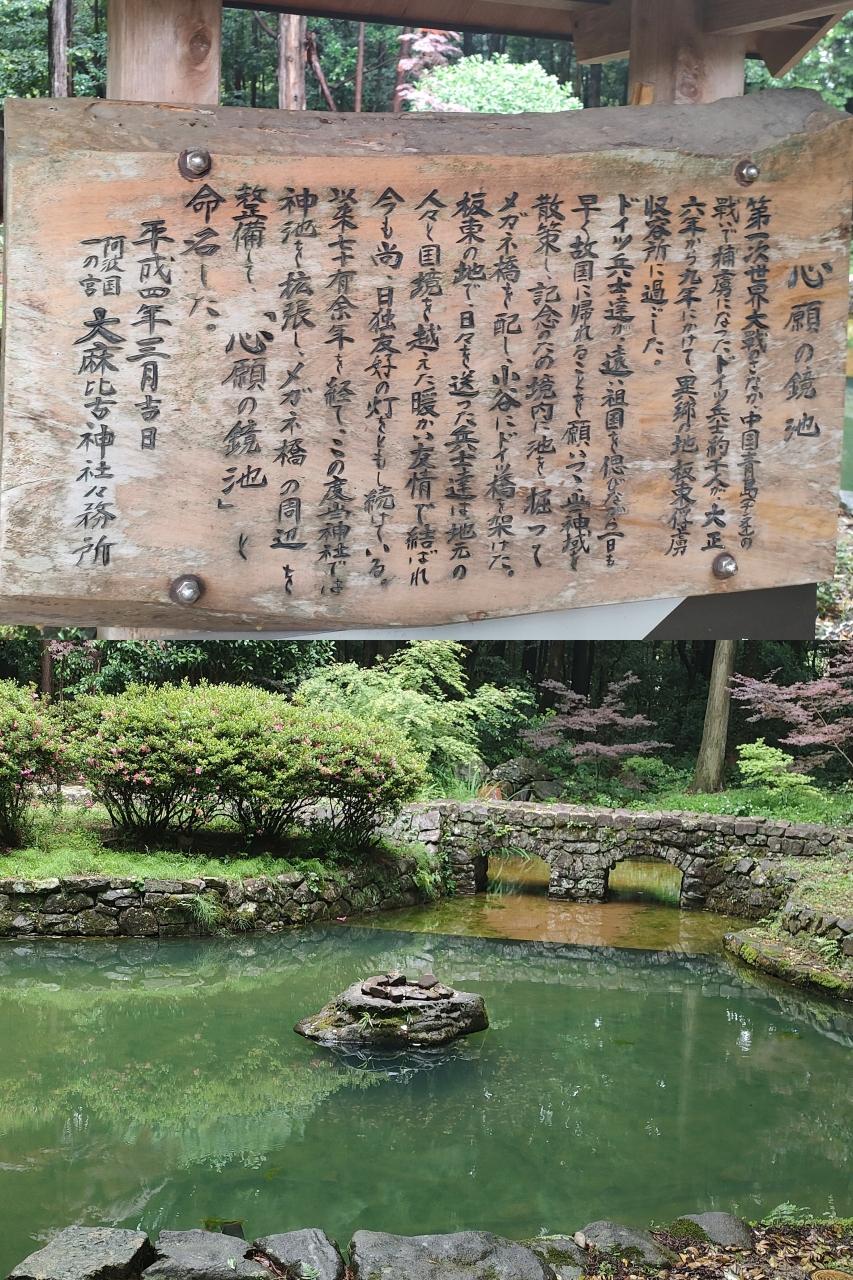 心願の鏡池
第一次世界大戦さなか、中国青島の
戦いで捕虜になったドイツ兵士約千人が、大正
六年から九年にかけて、異郷の地板東俘虜
収容所に過ごした。
ドイツ兵士達が、遠い祖国を偲びながら一日も
早く故国に帰れることを願いつつ、当神域を
散策し、記念のため境内に池を掘って
メガネ橋を配し、小谷にドイツ橋を架けた。
板東の地で、日々を送った兵士達は地元の
人々と国境を越えた暖かい友情で結ばれ
今も尚、日独友好の灯をともし続けている。
以来七十有余年を経て、この度当神社では
神池を拡張し、メガネ橋の周辺を
整備して、「心願の鏡池」と
命名した。
平成四年三月吉日
阿波国
一の宮 大麻比古神社々務所